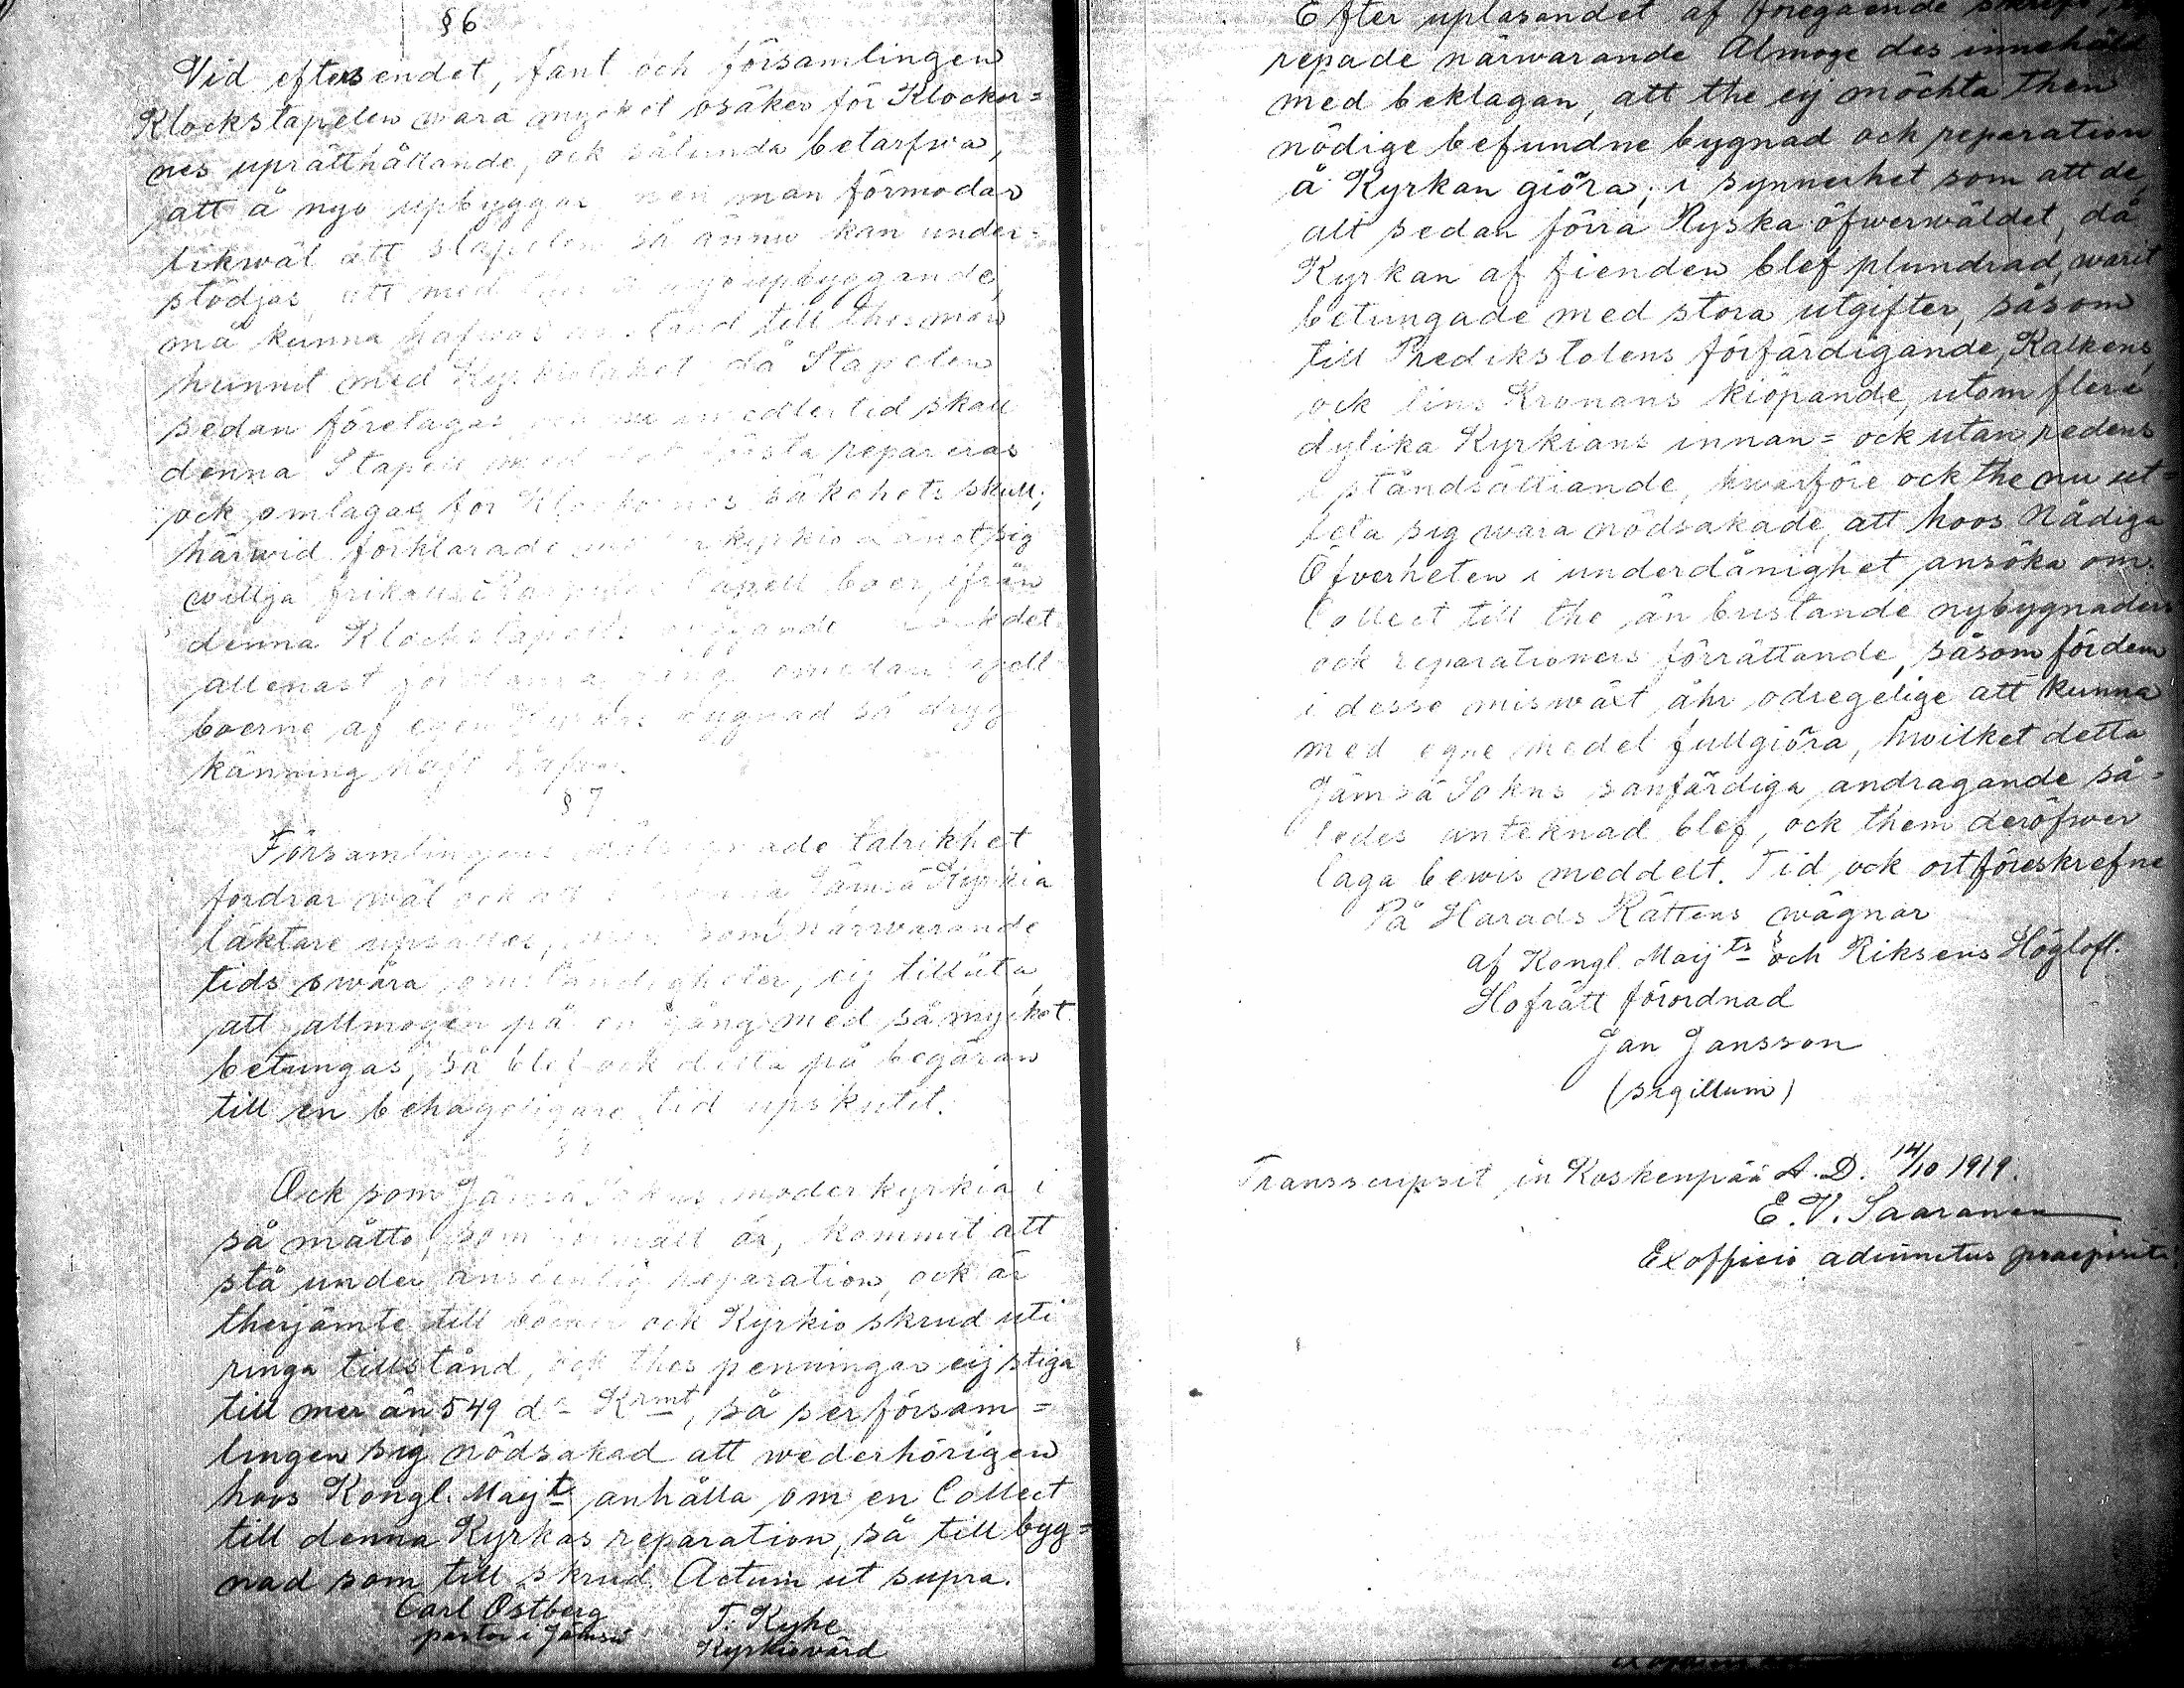 § 6
Vid eftersendet, fant och församlingen
Klockstapelen wara mycket osäker för Klockor=
nes uprätthållande, ock sålunda betarfwa,
att å nyo upbyggas men man förmodar
likwäl att stapelen så ännu kan under=
stödjas att med å nyo upbyggande,
må kunna hafwas till thes man
hunnit med Kyrkiotaket då Stapelen
sedan företagas, medlertid skall
denna Stapell med det första repareras
ock omlagas för Klockornes säkehets skull;
härwid förklarade moderkyrkio sig
willja frikalla Capell boer, ifrån
denna Klockstapells byggande ock det
allenast för denna gång, emedan Capell
boerne af egen Kyrkas bygnad så dryg
känning haft hafwa.
§ 7
Församlingens talrikhet
fordrar wäl ock att i Jämsä Kyrkia
läktare upsättes, men som närwarande
tids swåra omständigheter, eij tillåta,
att allmogen på en gång med så mycket
betungas, så blef ock detta på begäran
till en behageligare tid upskutit.
Ock som Jämsä Sokns moderkyrkia i
så måtto, som förmält är, kommit att
stå under ansenlig reparation, ock är
therjämte till böcker ock Kyrkio skrud uti
ringa tillstånd, ock thes penningar eij stiga
till mer än 549 dr Krmt, så ser försam=
lingen sig nödsakad att wederhörigen
hoos Kongl. Maijt anhålla om en Collect
till denna Kyrkas reparation, så till byg=
nad som till skrud. Actum ut supra.
Carl Östberg T. Kyhe
pastor i Jämsä Kyrkiovärd
Efter uplasandet af föregående
repade närwarande Almoge des innehåld
med beklagan, att the eij möchta then
nödige befundne bygnad ock reparation
å Kyrkan giöra; i synnerhet som att de
alt sedan förra Ryska öfwerwäldet, då
Kyrkan af fienden blef plundrad, warit
betungade med stora utgifter, såsom
till Predikstolens förfärdigande, Kalkens
ock lius Kronans kiöpande, utom flere
dylika Kyrkians innan= ock utan redens
i ståndsättiande, hwarföre ock the nu ut=
leta sig wara nödsakade, att hoos Nådiga
Öfverheten i underdånighet ansöka om
Collect till the än bristande nybygnaders
ock reparationers förrättande, såsom för dem
i desse miswäxt åhr odregelige att kunna
med egne medel fullgiöra, hwilket detta
Jämsä Sokns sanfärdiga andragande så=
ledes anteknad blef, ock them deröfwer
laga bewis meddelt. Tid ock ort föreskrefne
På Härads Rättens wägnar
af Kongl. Maijts och Riksens Höglofl.
Hofrätt förordnad
Jan Jansson
(sigillum)
Transscripsit in Koskenpää A. D. 14/10 1919.
E. V. Saaranen
Ex officio adiunctus praeposit.